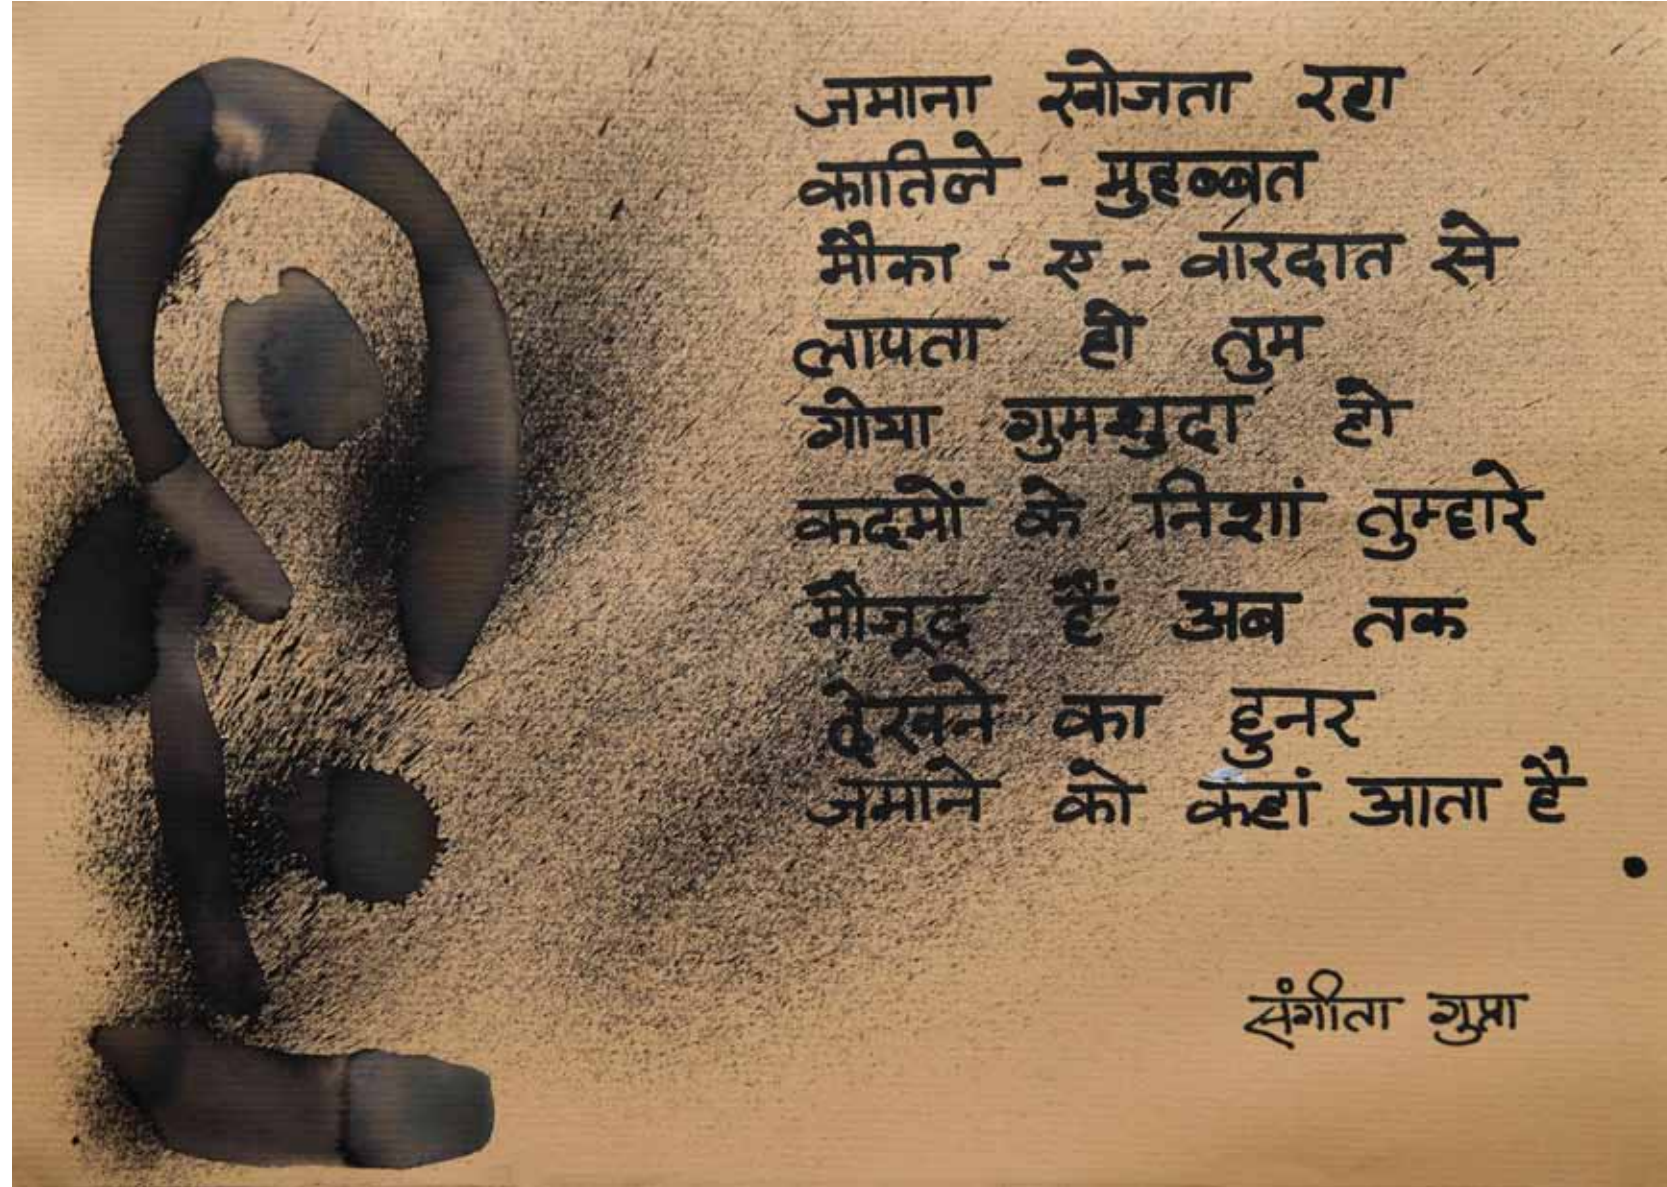 जमाना खोजता रहा
कातिले - मुहब्बत
मौका - ए - वारदात से
लापता हो तुम
गोया गुमशुदा हो
कदमों के निशां तुम्हारे
मौजूद हैं अब तक
देखने का हुनर
जमाने को कहां आता है
संगीता गुप्ता